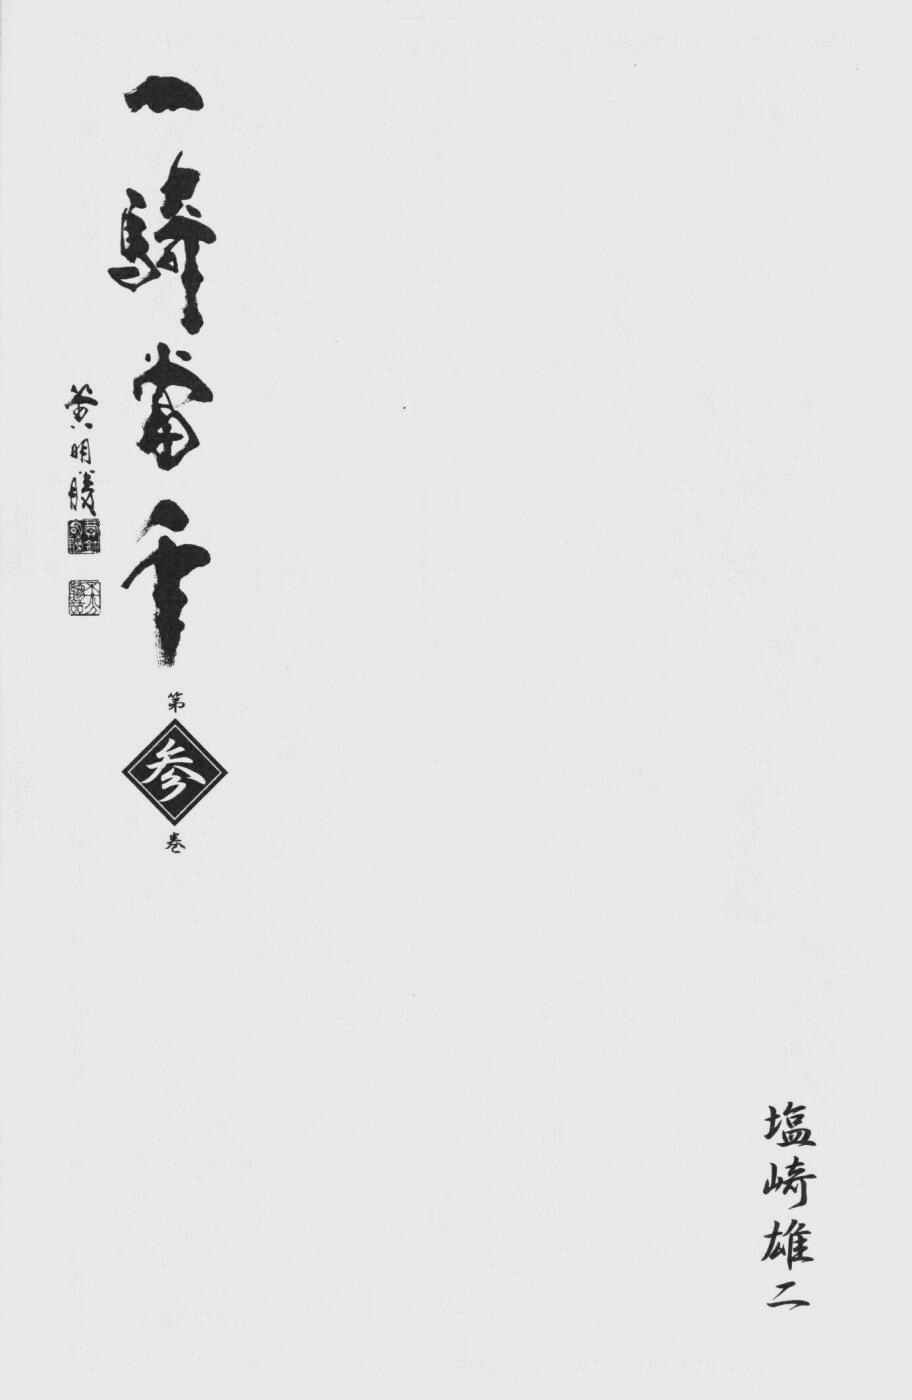 塩崎雄二
一騎當千
第参巻
黄明勝